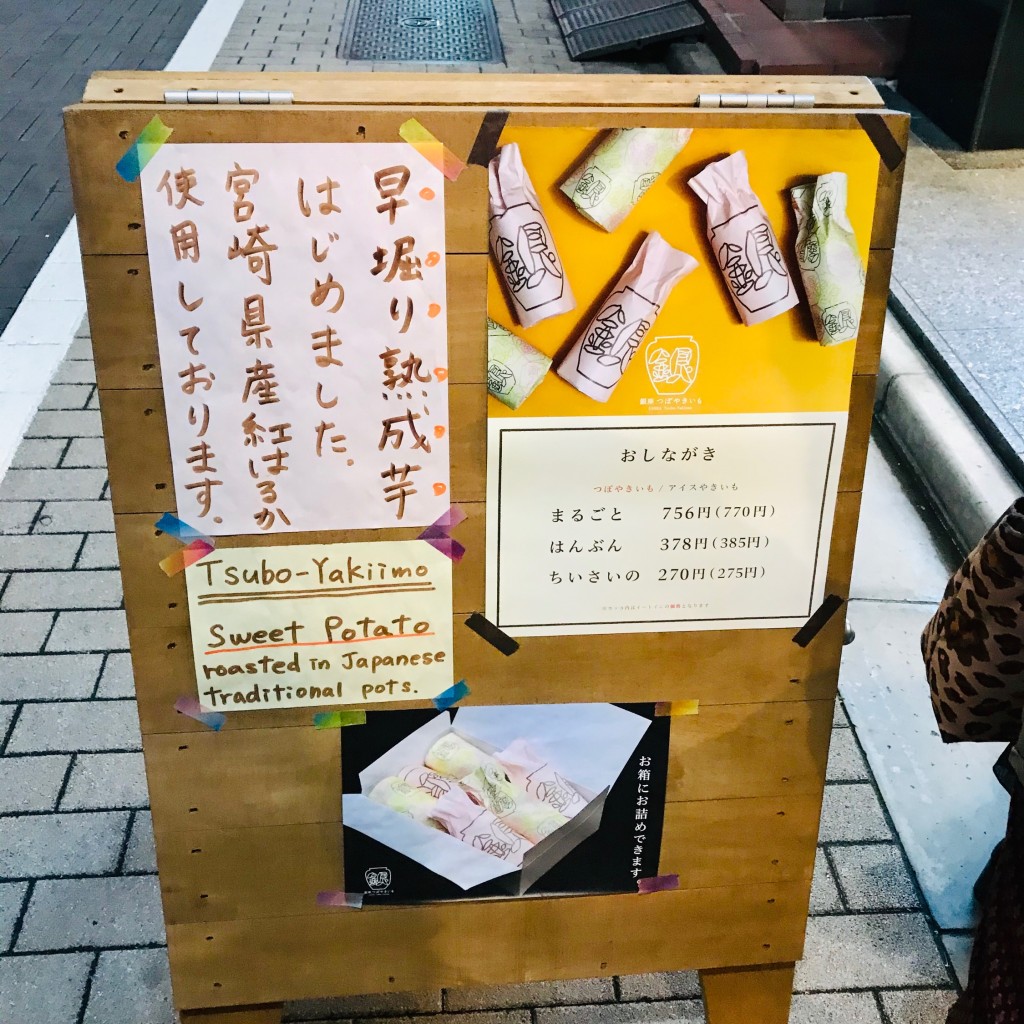 早堀り熟成芋
はじめました。
宮崎県産紅はるか
使用しております。
Tsubo-Yakiimo
Sweet Potato
roasted in Japanese
traditional pots.
銀座 つぼやきいも
おしながき
つぼやきいも / アイスやきいも
まるごと 756円(770円)
はんぶん 378円(385円)
ちいさいの 270円(275円)
お箱にお詰めできます
銀座つぼやきいも